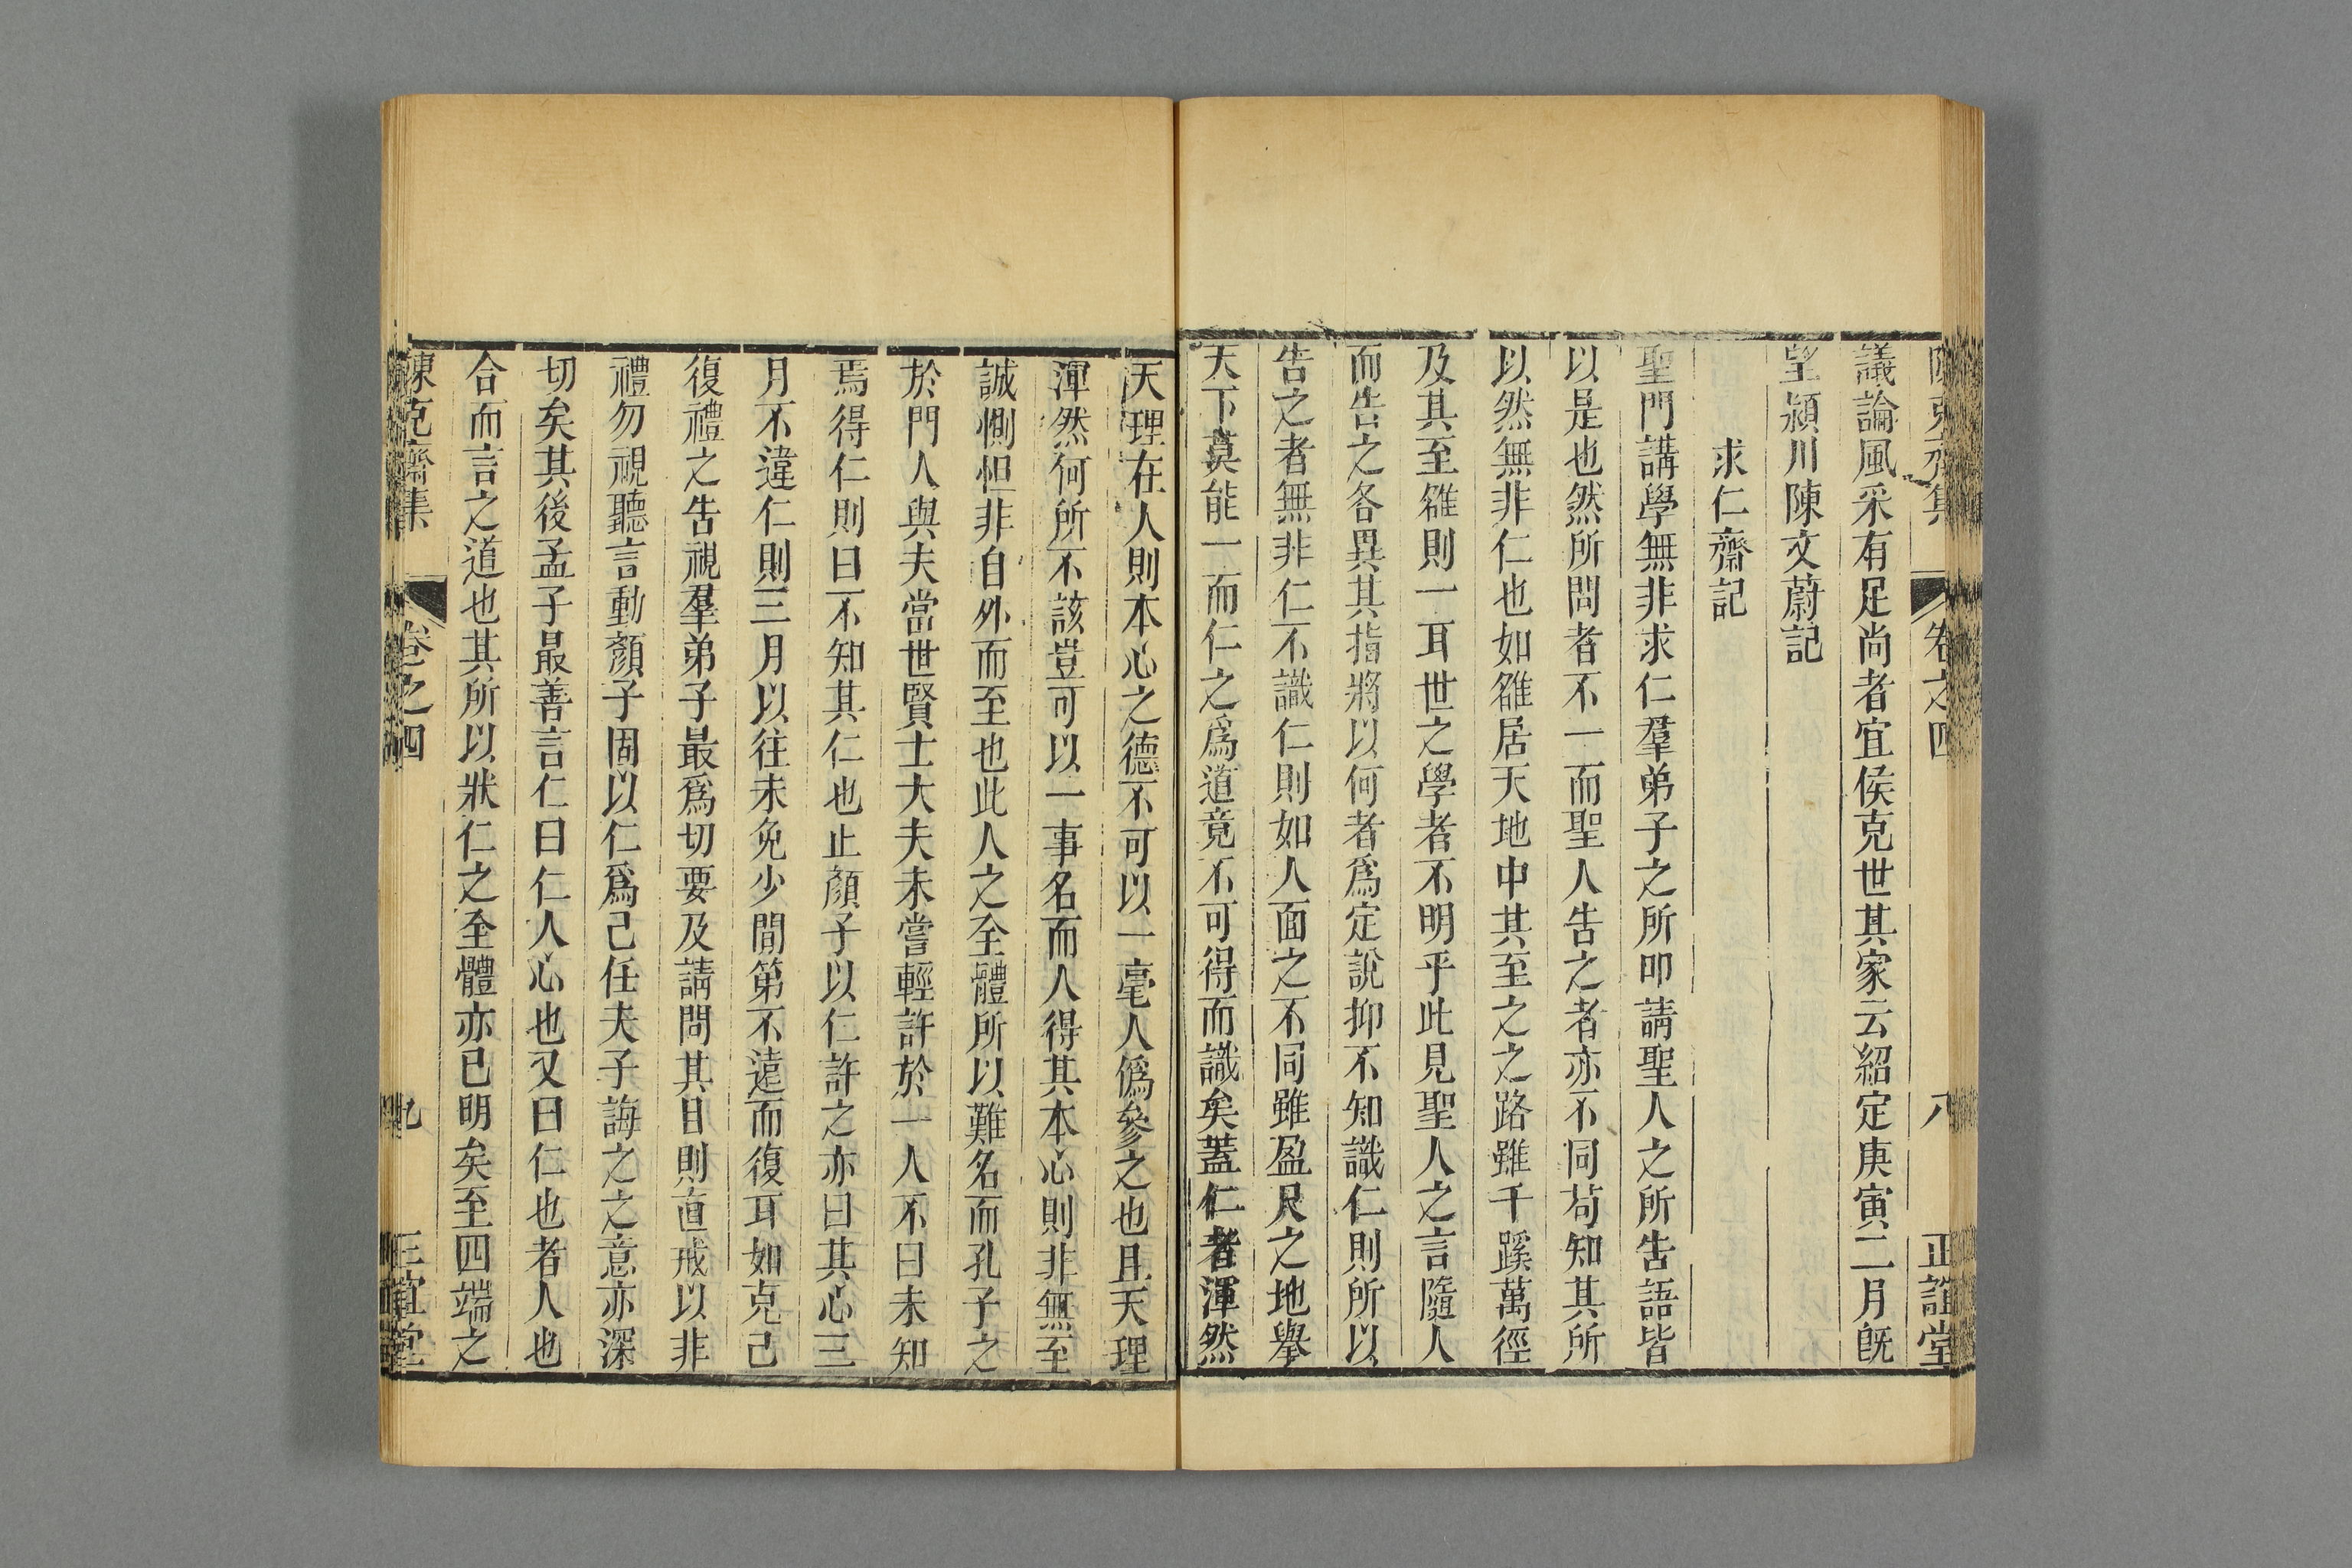 陳克齋集 卷之四 八 正誼堂
議論風采有足尚者宜侯克世其家云紹定庚寅二月旣
望潁川陳文蔚記
求仁齋記
聖門講學無非求仁羣弟子之所叩請聖人之所告語皆
以是也然所問者不一而聖人告之者亦不同苟知其所
以然無非仁也如雒居天地中其至之之路雖千蹊萬徑
及其至雒則一耳世之學者不明乎此見聖人之言隨人
而告之各異其指將以何者爲定說抑不知識仁則所以
告之者無非仁不識仁則如人面之不同雖盈尺之地舉
天下莫能一而仁之爲道竟不可得而識矣蓋仁者渾然
天理在人則本心之德不可以一毫人僞參之也且天理
渾然何所不該豈可以一事名而人得其本心則非無至
誠惻怛非自外而至也此人之全體所以難名而孔子之
於門人與夫當世賢士大夫未嘗輕許於一人不曰未知
焉得仁則曰不知其仁也止顏子以仁許之亦曰其心三
月不違仁則三月以往未免少間第不遠而復耳如克己
復禮之告視羣弟子最爲切要及請問其目則直戒以非
禮勿視聽言動顏子固以仁爲己任夫子誨之之意亦深
切矣其後孟子最善言仁曰仁人心也又曰仁也者人也
合而言之道也其所以狀仁之全體亦已明矣至四端之
陳克齋集 卷之四 九 正誼堂